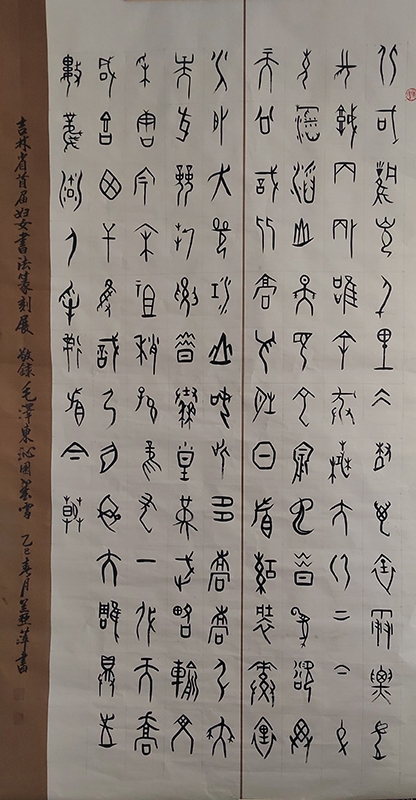 北國風光千里冰封萬里雪飄望
長城內外唯余莽莽大河上下頓
失滔滔山舞銀蛇原馳蠟象欲與
天公試比高須晴日看紅裝素裹
分外妖嬈江山如此多嬌引無數
英雄競折腰惜秦皇漢武略輸文
采唐宗宋祖稍遜風騷一代天驕
成吉思汗只識彎弓射大雕俱往
數風流人物還看今朝
吉林省首届妇女書法篆刻展 敬錄毛澤東沁園春雪 乙巳春月萍書